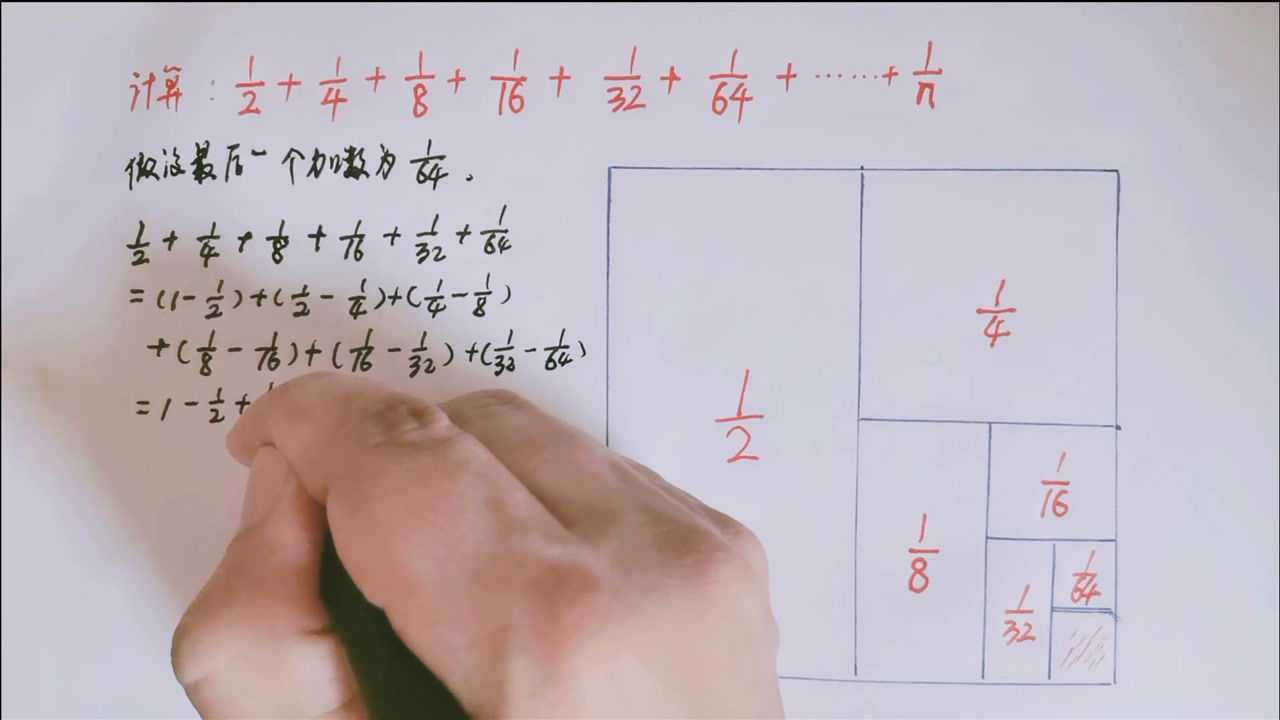 计算: 1/2 + 1/4 + 1/8 + 1/16 + 1/32 + 1/64 + ……+ 1/n
做设最后一个加数为 1/64 .
1/2 + 1/4 + 1/8 + 1/16 + 1/32 + 1/64
= (1 - 1/2) + (1/2 - 1/4) + (1/4 - 1/8)
+ (1/8 - 1/16) + (1/16 - 1/32) + (1/32 - 1/64)
= 1 - 1/2 +
1/4
1/2
1/16
1/8
1/64
1/32